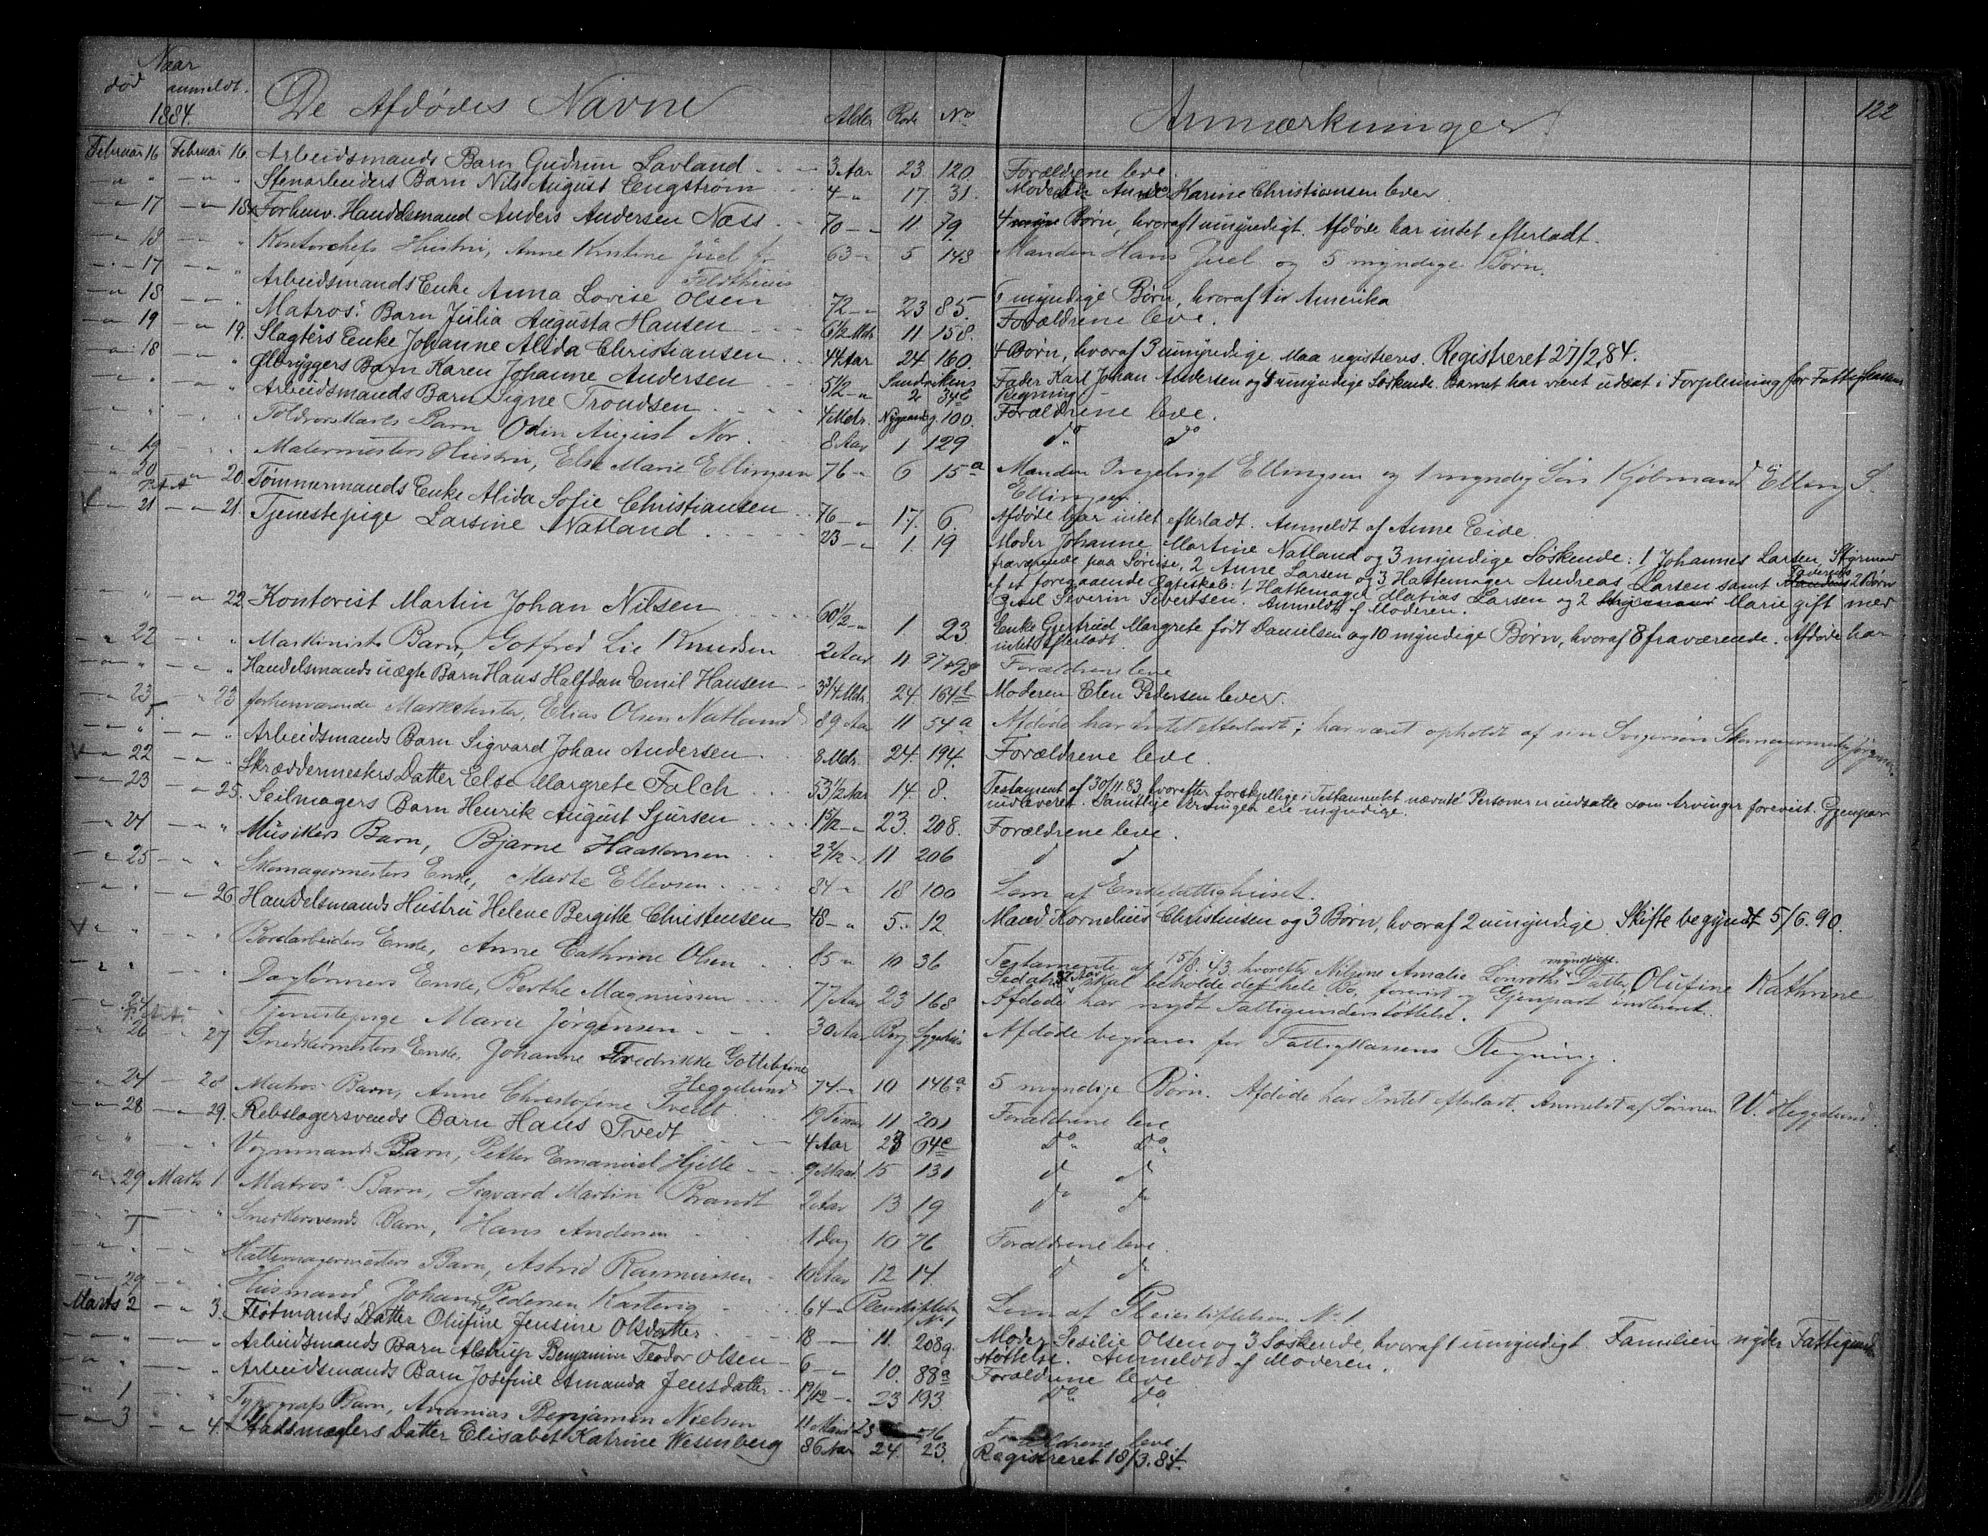 Naar
død anmeldt. De Afdødes Navne Alder Rode No Anmærkninger. 122
1884.
Februar 16 Februar 16. Arbeidsmands Barn Gudrun Lavland 3 Aar 23 120. Forældrene leve.
" " " Stenarbeiders Barn Nils August Engstrøm 4 " 17 31. Moderen Anne Karine Christiansen lever.
" 17 " 18 Forhenv. Handelsmand Anders Andersen Næss 70 " 11 79. 4 Børn, hvoraf 1 umyndigt. Afdøde har intet efterladt.
" 18 " " Kontorchefs Hustru, Anne Kristine Juel f. 63 " 5 143 Manden Hans Juel og 5 myndige Børn.
Feldthuus
" 17 " " Arbeidsmands Enke Anna Lovise Olsen 72 " 23 85. 6 myndige Børn, hvoraf 1 i Amerika
" 18 " Matros' Barn Julia Augusta Hansen 6 1/2 Mdr. 11 158. Forældrene leve.
" 19 " 19. Slagters Enke Johanne Alida Christiansen 44 Aar 24 160. 4 Børn, hvoraf 3 umyndige. Maa registreres. Registreret 27/2.84.
" 18 " Ølbryggers Barn Karen Johanne Andersen 5 1/2 " Sandvikens 2 34 Fader Karl Johan Andersen og 4 umyndige Søskende. Barnet har været udsat i Forpleining for Fattigkassens
Regning.
" " " Arbeidsmands Barn Signe Trondsen 4 Mdr. Nygaardsg. 100. Forældrene leve.
" " " Barn Odin August Nor. 8 Aar 1 129 do do
" 19 " " Malermesters Hustru, Else Marie Ellingsen 76 " 6 15 a Manden Ingebrigt Ellingsen og 1 myndig Søn Kjøbmand Elling S.
Ellingsen.
" 20 " 20. Tømmermands Enke Alida Sofie Christiansen 76 " 17. 6. Afdøde har intet efterladt. Anmeldt af Anne Eide.
" 21 " 21. Tjenestepige Larsine Natland 23 " 1. 19 Moder Johanne Martine Natland og 3 myndige Søskende: 1 Johannes Larsen, Styrmand
fraværende paa Søreise, 2 Anne Larsen og 3 Hattemager Andreas Larsen samt 2 Børn
af et foregaaende Ægteskab: 1 Hattemager Matias Larsen og 2 Marie gift med
Severin Sivertsen. Anmeldt af Moderen.
" " " 22. Kontorist Martin Johan Nilsen 60 1/2 " 1 23 Enke Gjertrud Margrete født Danielsen og 10 myndige Børn, hvoraf 8 fraværende. Afdøde har
intet efterladt.
" 22 " Maskinists Barn, Gotfred Lie Knudsen 2 Aar 11 97 & 98 Forældrene leve
" " " Handelsmands uægte Barn Hans Halfdan Emil Hansen 3 3/4 Mdr. 24. 164 b Moderen Elen Pedersen lever.
" 23 " 23 forhenværende Marketenter, Elias Olsen Natland 89 Aar 11 54 a Afdøde har Intet efterladt; har været opholdt af sin Svigersøn Skomagermester
" " " Arbeidsmands Barn Sigvard Johan Andersen 8 Mdr. 24. 194. Forældrene leve.
" 22 " Skræddermesters Datter Else Margrete Falch 53 1/2 Aar 14. 8. Testament af 30/11.83 hvorefter forskjellige i Testamentet nævnte Personer er indsatte som Arvinger forevist. Gjenpart
indleveret. Samtlige Arvinger ere myndige.
" 23 " 25. Seilmagers Barn Henrik August Sjursen 1 5/12 " 23. 208. Forældrene leve.
" 24 " " Musikers Barn, Bjarne Haakonsen 2 2/12 " 11 206 d d
" 25 " " Skomagermesters Enke, Marte Ellevsen 84 " 18 100 Lem af Enkefattighuset.
" " " 26. Handelsmands Hustru Helene Bergitte Christensen 48 " 5. 12. Mand Kornelius Christensen og 3 Børn, hvoraf 2 umyndige. Skifte begyndt 5/6.90.
" " " Bordarbeiders Enke, Anne Cathrine Olsen 85 " 10 36 Testamente af 15/8.43. hvorefter Nilsine Amalie Lønroths myndige Datter, Olufine Kathrine
skal beholde det hele Bo, forevist og Gjenpart indleveret.
" " " Dagleiers Enke, Berthe Magnussen 77 Aar 23 168 Afdøde har nydt Fattigunderstøttelse.
" 24 " Tjenestepige Marie Jørgensen 30 Aar Berg Afdøde begraves for Fattigkassens Regning.
" 26 " 27 Snedkermesters Enke, Johanne Fredrikke Gottliebine
Heggelund 74 " 10 146 a 5 myndige Børn. Afdøde har Intet efterladt. Anmeldt af Sønnen W. Heggelund.
" 24 " 28 Matros' Barn, Anne Christofine Tvedt 19 Timer 11 201 Forældrene leve
" 28 " 29. Rebslagersvends Barn Hans Tvedt 4 Aar 23 64 c Do Do
" " " Vognmands Barn, Petter Emanuel Hjelle 9 Maan 15 131 d d
" 29 Marts 1 Matros' Barn, Sigvard Martin Brandt 2 Aar 13 19 do do
" " " Snedkersvends Barn, Hans Andersen 1 Dag 10 76 Forældrene leve.
" " " Hattemagermesters Barn, Astrid Rasmussen 10 Aar 12 14. d d
" 29 " " Huusmand Johan Pedersen 64 " Pleiestiftelsen No 1 Lem af Pleiestiftelsen No 1
Marts 2 " 3. Fløtmands Datter Olufine Jensine Olsdatter 18 " 11. 208 g. Moder Sesilie Olsen og 3 Søskende, hvoraf 1 umyndigt. Familien nyder Fattigunder-
støttelse. Anmeldt af Moderen.
" " " Arbeidsmands Barn Alstrup Benjamin Teodor Olsen 6 " 10. 88 a Forældrene leve
" " " Arbeidsmands Barn Josefine Amanda Jensdatter 1 9/12 " 23 193. Do Do
" 1 " Typografs Barn, Ananias Benjamin Nielsen 11 Maan 23 Forældrene leve
" 3 " 4. Stadsmæglers Datter Elisabet Katrine Wesenberg 86 Aar 24. 23. Registreret 18/3.84.